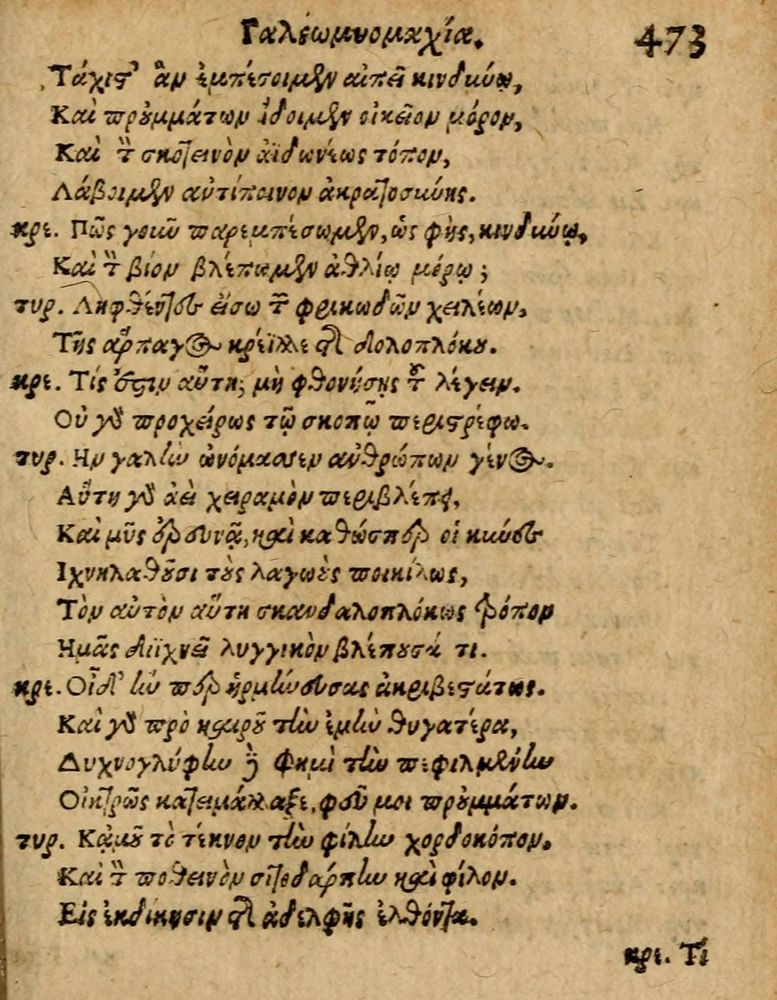 Γαλεωμυομαχία. 473
Τάχιστ' ἂν ἐμπέσοιμεν αἰπεῖ κινδύνῳ,
Καὶ πρὸ ὀμμάτων ἴδοιμεν οἰκεῖον μόρον,
Καὶ τὸν σκοτεινὸν ἀϊδωνέως τόπον,
Λάβοιμεν ἀντίποινον ἀκρατοσύνης.
κρε. Πῶς γοῦν παρεμπέσωμεν, ὡς φῂς, κινδύνῳ,
Καὶ τὸν βίον βλέπωμεν ἀθλίῳ μέρῳ;
τυρ. Ληφθέντες εἴσω τῶν φρικωδῶν χειλέων,
Τῆς ἅρπαγος κρεΐλλε καὶ δολοπλόκου.
κρε. Τίς ἔστιν αὕτη; μὴ φθονήσῃς τοῦ λέγειν.
Οὐ γὰρ προχείρως τῷ σκοπῷ περιστρέφω.
τυρ. Ην γαλῶ ὠνόμασεν ἀνθρώπων γένος.
Αὕτη γὰρ ἀεὶ χειραμὸν περιβλέπει,
Καὶ μῦς ἐρευνᾷ, καὶ καθώσπερ οἱ κύνες
Ιχνηλατοῦσι τοὺς λαγωοὺς ποικίλως,
Τὸν αὐτὸν αὕτη σκανδαλοπλόκως τρόπον
Ημᾶς διϊχνεῖ λυγγικὸν βλέπουσά τι.
κρε. Οἶδ' ἣν περ ἡρμήνευσας ἀκριβεστάτως.
Καὶ γὰρ πρὸ καιροῦ τὴν ἐμὴν θυγατέρα,
Λυχνογλύφην δὲ φημὶ τὴν πεφιλμένην
Οἰκτρῶς κατεμάλαξε, φεῦ μοι πρὸ ὀμμάτων.
τυρ. Κᾀμοῦ τὸ τέκνον τὴν φίλην χορδοκόπον.
Καὶ τὸν ποθεινὸν σιτοδάρπην καὶ φίλον.
Εἰς ἐκδίκησιν τῆς ἀδελφῆς ἐλθόντα.
κρε. Τί